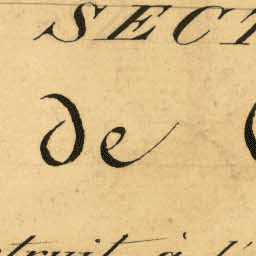 SECT
de
truit à l'